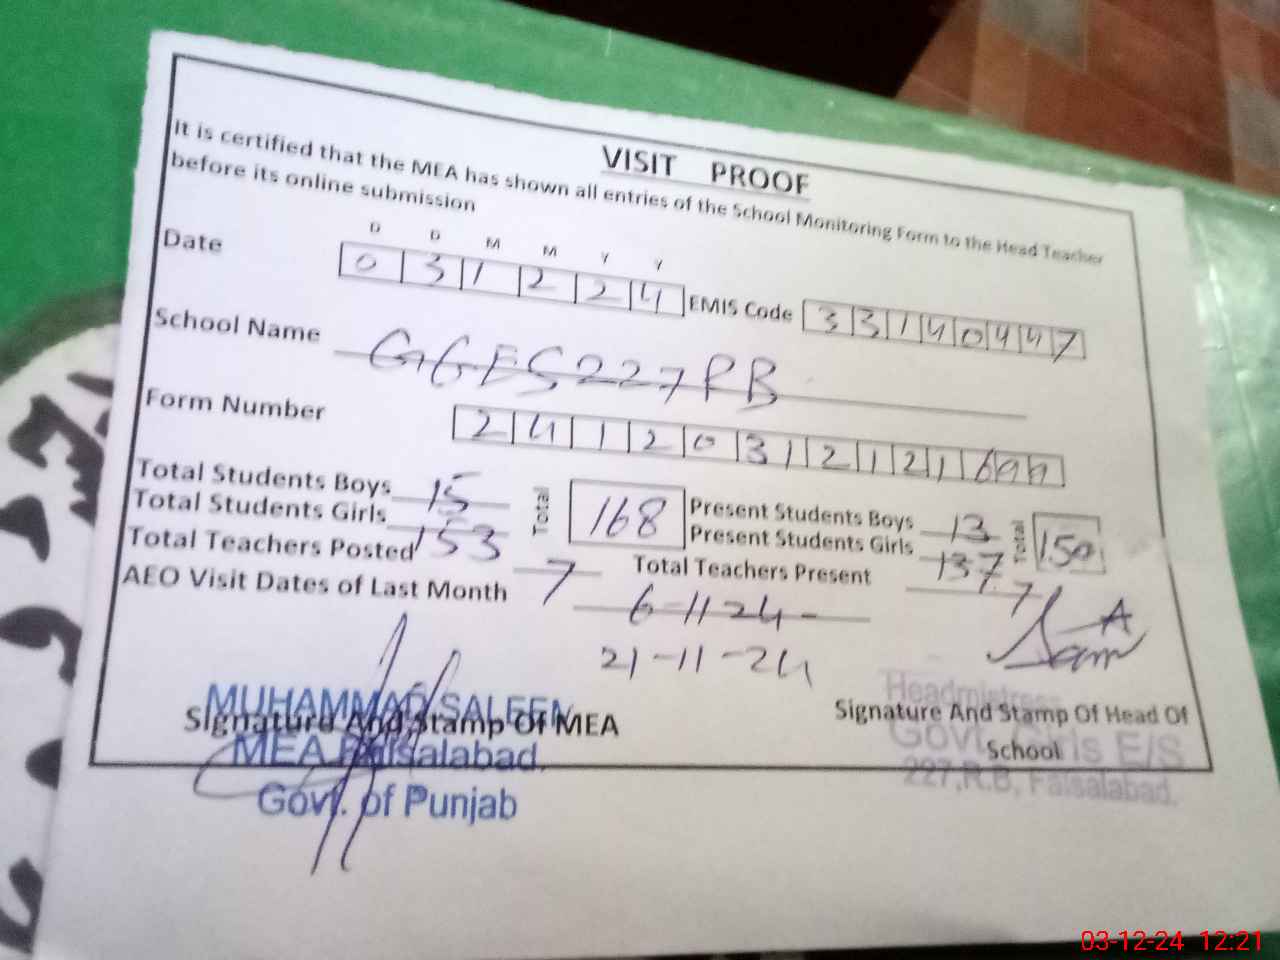 VISIT PROOF
It is certified that the MEA has shown all entries of the School Monitoring Form to the Head Teacher
before its online submission
D D M M Y Y
Date 0 3 1 2 2 4 EMIS Code 3 3 1 4 0 4 4 7
School Name GGES 227 RB
Form Number 2 4 1 2 0 3 1 2 1 2 1
Total Students Boys 15 Total 168 Present Students Boys 13 Total 150
Total Students Girls 153 Present Students Girls 137
Total Teachers Posted 7 Total Teachers Present 7
AEO Visit Dates of Last Month 6-11-24
21-11-24
MUHAMMAD SALEEN
Signature And Stamp Of MEA
MEA Faisalabad.
Govt. of Punjab
Headmistress
Signature And Stamp Of Head Of
School
Govt. Girls E/S
227, R.B, Faisalabad.
03-12-24 12:21